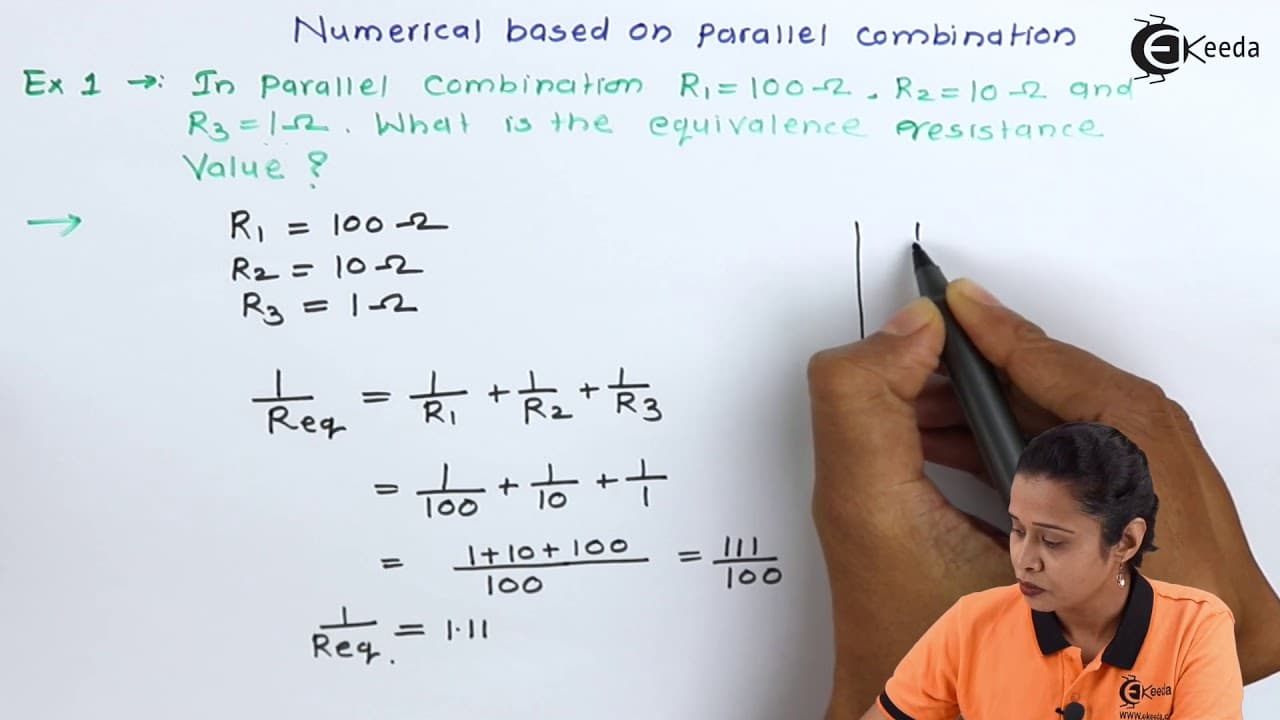 Numerical based on parallel combination
EKeeda
Ex 1 →: In parallel combination R₁ = 100 Ω, R₂ = 10 Ω and
R₃ = 1 Ω. What is the equivalence resistance
Value ?
→ R₁ = 100 Ω
R₂ = 10 Ω
R₃ = 1 Ω
1/Req = 1/R₁ + 1/R₂ + 1/R₃
= 1/100 + 1/10 + 1/1
= 1+10+100/100 = 111/100
1/Req. = 1.11
EKeeda